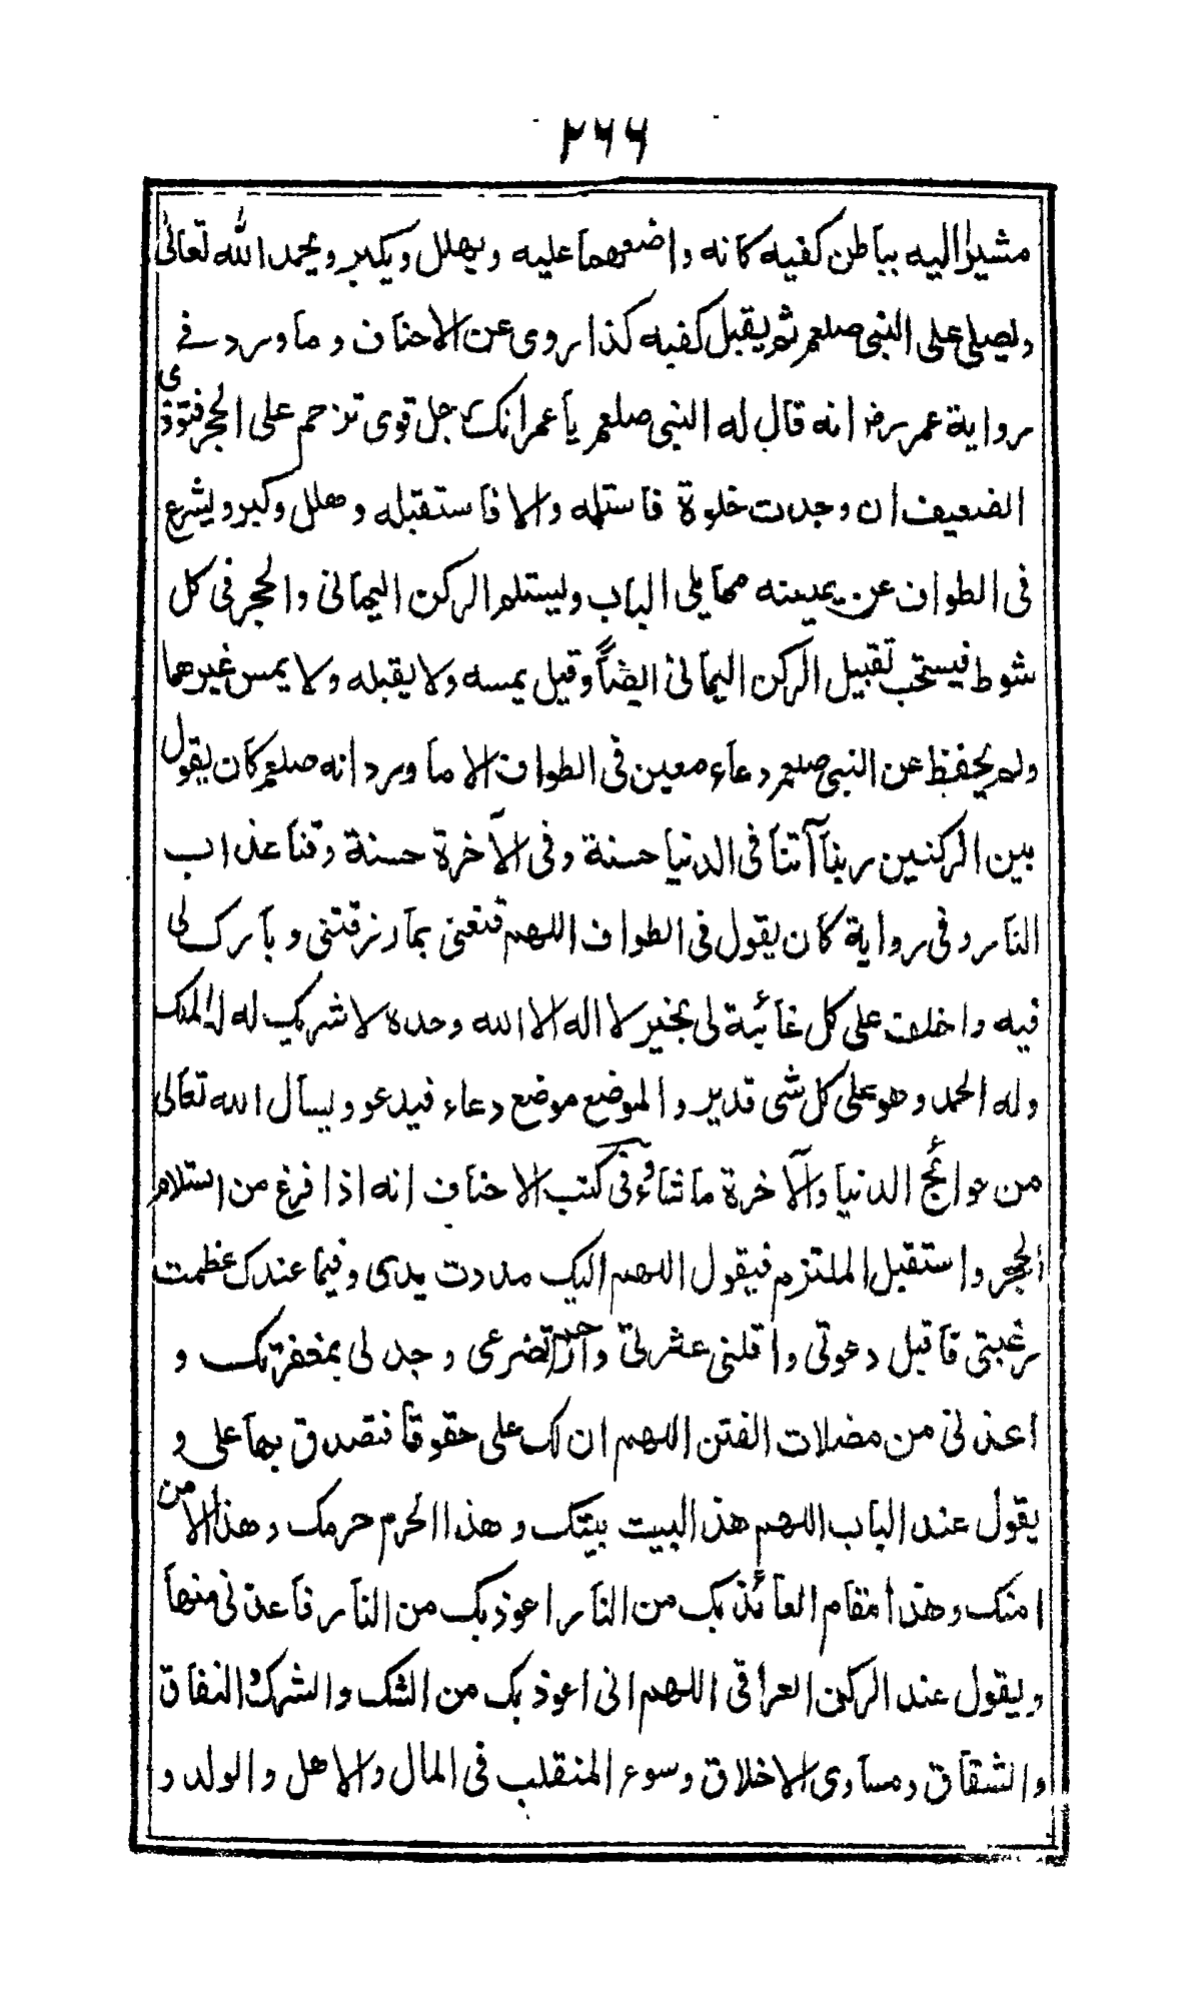 ٢٦٦
مشيرا اليه بباطن كفيه كانه واضعهما عليه ويهلل ويكبر ويحمد الله تعالى
ويصلي على النبي صلعم ثم يقبل كفيه كذا روى عن الاحناف وما ورد في
رواية عمر رض انه قال له النبي صلعم يا عمر انك رجل قوى تزحم على الحجر فتؤذى
الضعيف ان وجدت خلوة فاستلمه والا فاستقبله وهلل وكبر ويشرع
فى الطواف عن يمينه مما يلى الباب ويستلم الركن اليمانى والحجر فى كل
شوط فيستحب تقبيل الركن اليمانى ايضاً وقيل يمسه ولا يقبله ولا يمس غيرهما
ولم يحفظ عن النبى صلعم دعاء معين فى الطواف الا ما ورد انه صلعم كان يقول
بين الركنين ربنا آتنا فى الدنيا حسنة وفى الآخرة حسنة وقنا عذاب
النار وفى رواية كان يقول فى الطواف اللهم قنعنى بما رزقتنى وبارك لى
فيه واخلف على كل غائبة لى بخير لا اله الا الله وحده لا شريك له له الملك
وله الحمد وهو على كل شى قدير والموضع موضع دعاء فيدعو ويسأل الله تعالى
من حوائج الدنيا والآخرة ما شاء وفى كتب الاحناف انه اذا فرغ من استلام
الحجر واستقبل الملتزم فيقول اللهم اليك مددت يدى وفيما عندك عظمت
رغبتى فاقبل دعوتى واقلنى عثرتى وارحم تضرعى وجد لى بمغفرتك و
اعذنى من مضلات الفتن اللهم ان لك على حقوقا فتصدق بها على و
يقول عند الباب اللهم هذا البيت بيتك وهذا الحرم حرمك وهذا الامن
امنك وهذا مقام العائذ بك من النار اعوذ بك من النار فاعذنى منها
ويقول عند الركن العراقى اللهم انى اعوذ بك من الشك والشرك والنفاق
والشقاق ومساوى الاخلاق وسوء المنقلب فى المال والاهل والولد و